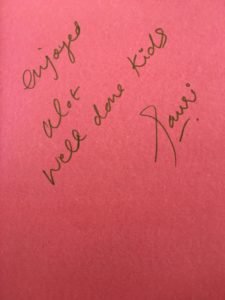 enjoyed
alot
Well done kids